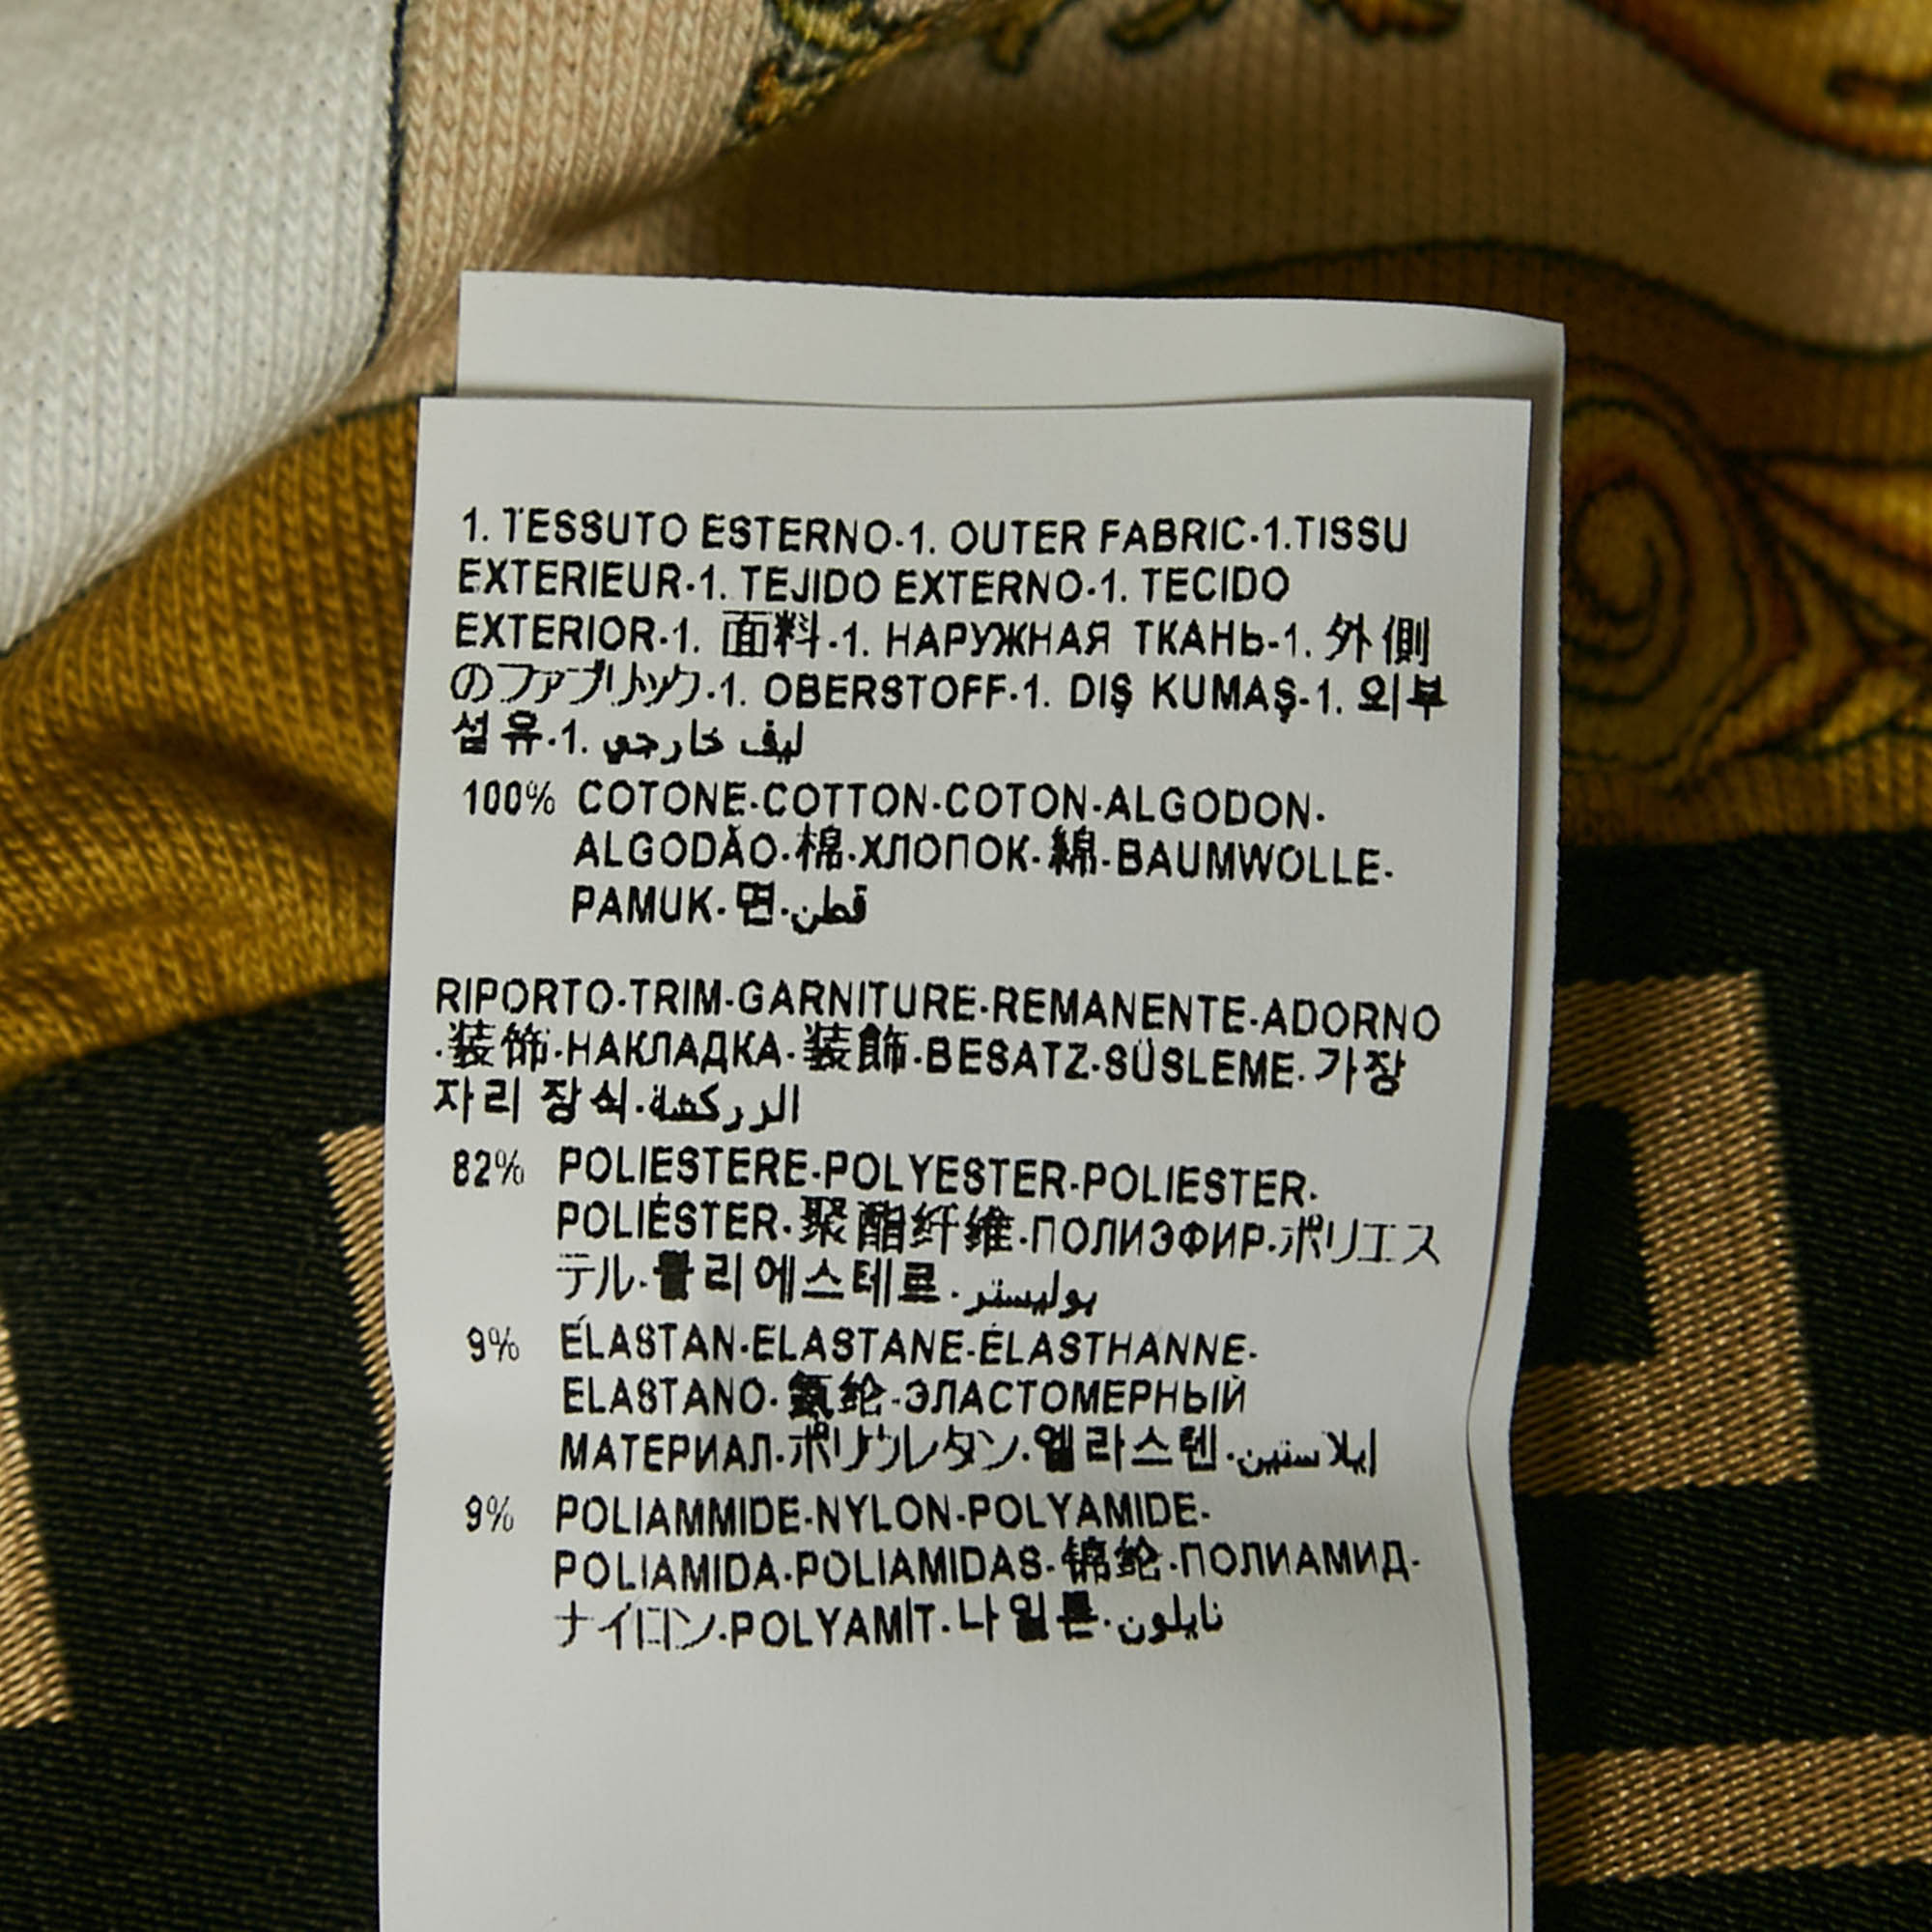 1. TESSUTO ESTERNO-1. OUTER FABRIC-1.TISSU
EXTERIEUR-1. TEJIDO EXTERNO-1. TECIDO
EXTERIOR-1. 面料-1. НАРУЖНАЯ ТКАНЬ-1. 外側
のファブリック-1. OBERSTOFF-1. DIŞ KUMAŞ-1. 외부
섬유-1. ليف خارجي
100% COTONE-COTTON-COTON-ALGODON-
ALGODÃO-棉-ХЛОПОК-綿-BAUMWOLLE-
PAMUK-면-قطن
RIPORTO-TRIM-GARNITURE-REMANENTE-ADORNO
-装饰-НАКЛАДКА-装飾-BESATZ-SÜSLEME-가장
자리 장식-الزركشة
82% POLIESTERE-POLYESTER-POLIESTER-
POLIÉSTER-聚酯纤维-ПОЛИЭФИР-ポリエス
テル-폴리에스테르-بوليستر
9% ELASTAN-ELASTANE-ÉLASTHANNE-
ELASTANO-氨纶-ЭЛАСТОМЕРНЫЙ
МАТЕРИАЛ-ポリウレタン-엘라스텐-إيلاستين
9% POLIAMMIDE-NYLON-POLYAMIDE-
POLIAMIDA-POLIAMIDAS-锦纶-ПОЛИАМИД-
ナイロン-POLYAMİT-나일론-نايلون